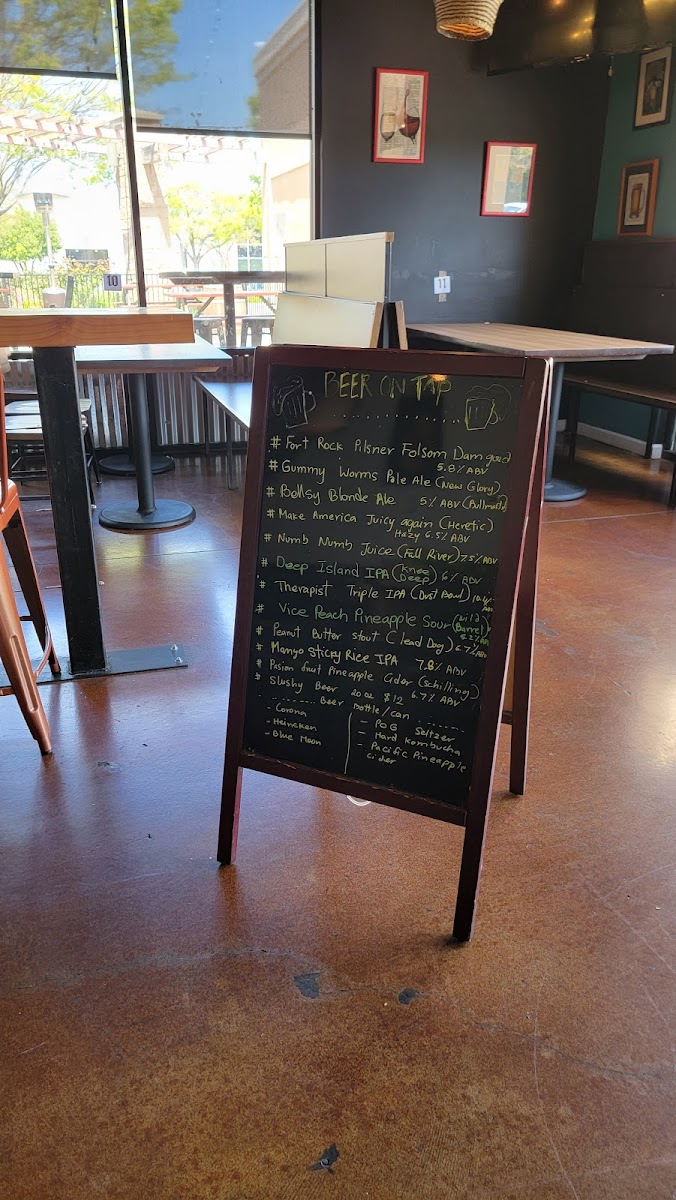 10
11
BEER ON TAP
# Fort Rock Pilsner Folsom Dam good
5.8% ABV
# Gummy Worms Pale Ale (New Glory)
# Ballsy Blonde Ale 5% ABV
# Make America Juicy again (Heretic)
Hazy 6.5% ABV
# Numb Numb Juice (Fall River) 7.5% ABV
# Deep Island IPA (Knee Deep) 6% ABV
# Therapist Triple IPA (Dust Bowl)
# Vice Peach Pineapple Sour (Wild Barrel)
5.2% ABV
# Peanut Butter Stout (Lead Dog) 6.7% ABV
# Mango Sticky Rice IPA 7.8% ABV
# Pasion fruit Pineapple Cider (Schilling)
6.7% ABV
# Slushy Beer 20 oz $12
Beer Bottle/can
- Corona
- Heineken
- Blue Moon
- POG Seltzer
- Hard Kombucha
- Pacific Pineapple
Cider